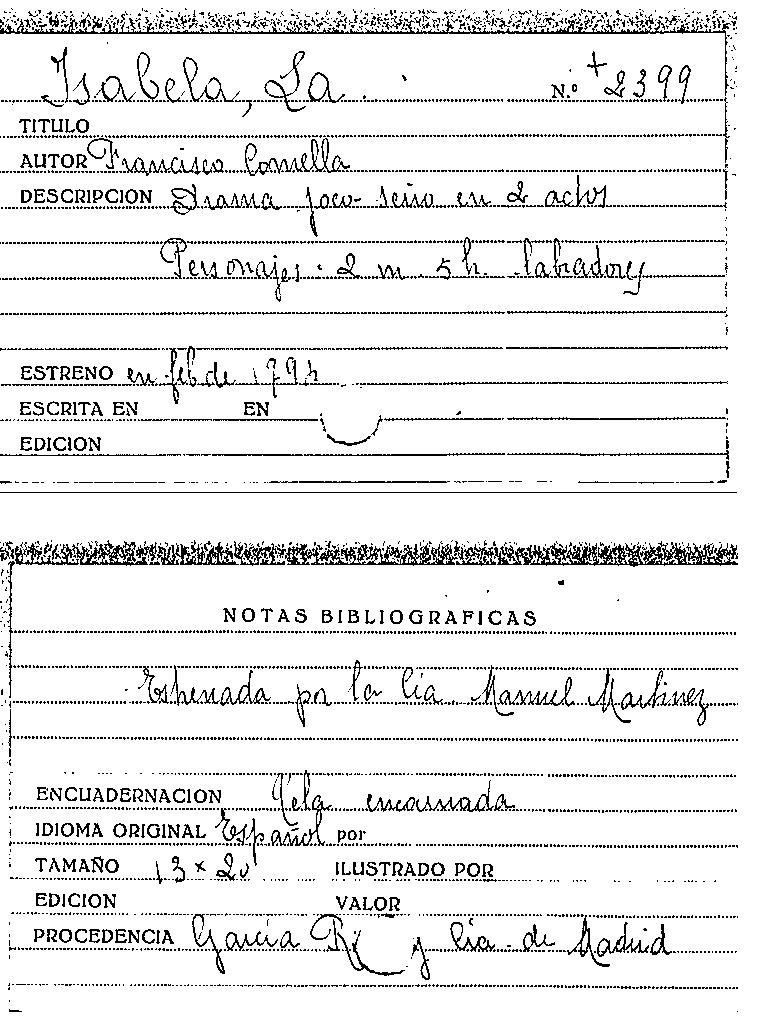 Isabela, La. N.º + 2399
TITULO
AUTOR Francisco Comella
DESCRIPCION Drama joco-serio en 2 actos
Personajes. 2 m. 5 h. labradores
ESTRENO en feb de 1794
ESCRITA EN EN
EDICION
NOTAS BIBLIOGRAFICAS
Estrenada por la Cía. Manuel Martinez
ENCUADERNACION Tela encarnada
IDIOMA ORIGINAL Español por
TAMAÑO 13 x 20 ILUSTRADO POR
EDICION VALOR
PROCEDENCIA García R y Cía. de Madrid